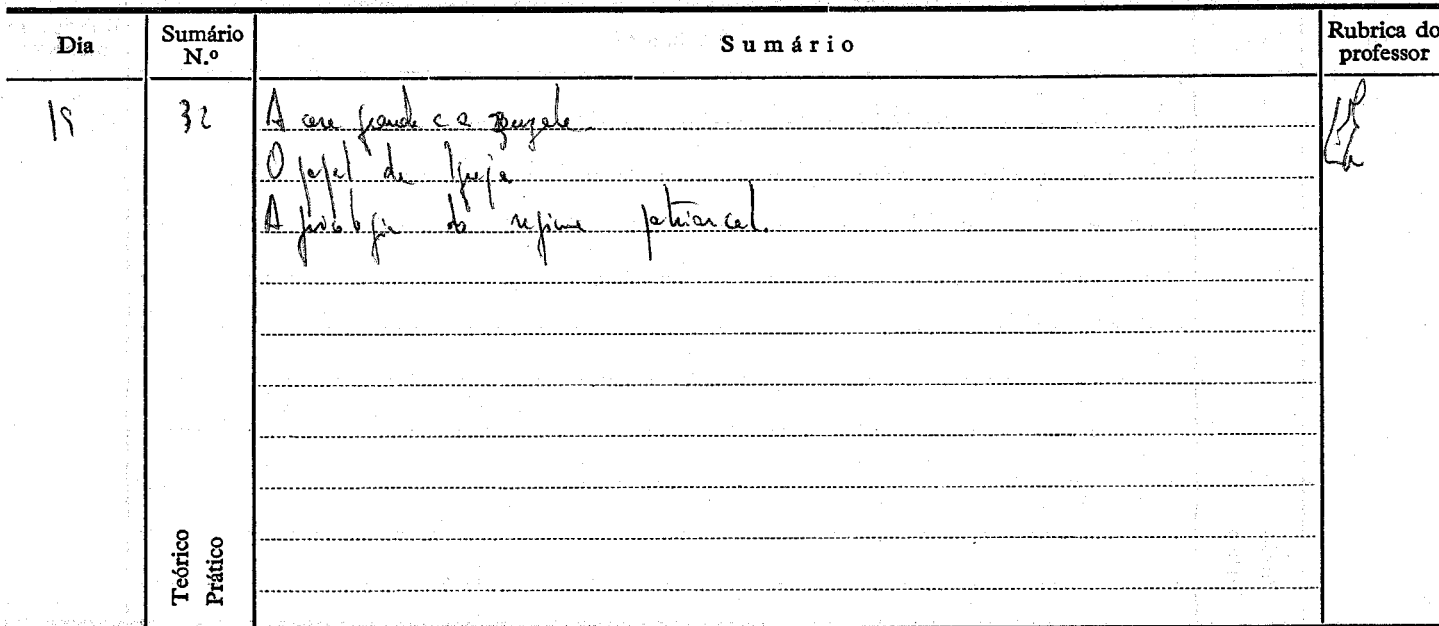 Dia
Sumário N.º
Sumário
Rubrica do professor
19
32
A casa grande e a senzala.
O papel da Igreja
A psicologia do regime patriarcal.
Teórico
Prático